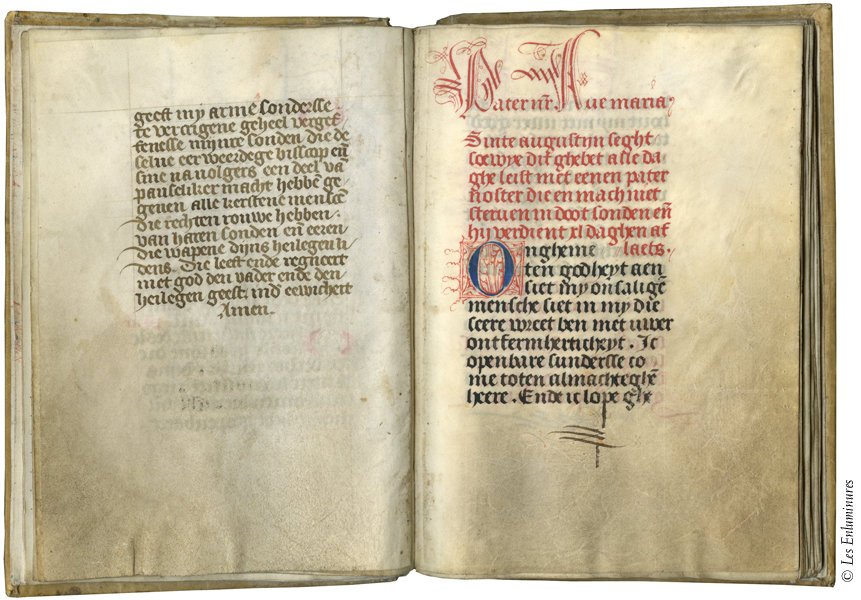 geest my arme sondersse
te vercrigene geheel verget
fenesse mijnre sonden die de
selue eerweerdege bisscop eñ
sine nauolgers een deel vã
pauseliker macht hebbẽ ge
geuen alle kerstene menscẽ
die rechten rouwe hebben
van haren sonden eñ eeren
die wapene dijns heilegen li
dens. Die leeft ende regneert
met god den vader ende den
heilegen geest. ind eewicheit
Amen.
Pater nr̃ Aue maria.
Sinte augustijn seght
soe wye dit ghebet alle da
ghe leist met eenen pater
noster die en mach niet
steruen in doot sonden eñ
hij verdient xl daghen af
laets.
Ongheme
ten godheyt aen
siet my onsaligẽ
mensche siet in my die
seere wreet ben met uwer
ontfermherticheyt. Ic
openbare sundersse co
me toten almachteghẽ
heere. Ende ic lope ghe
© Les Enluminures